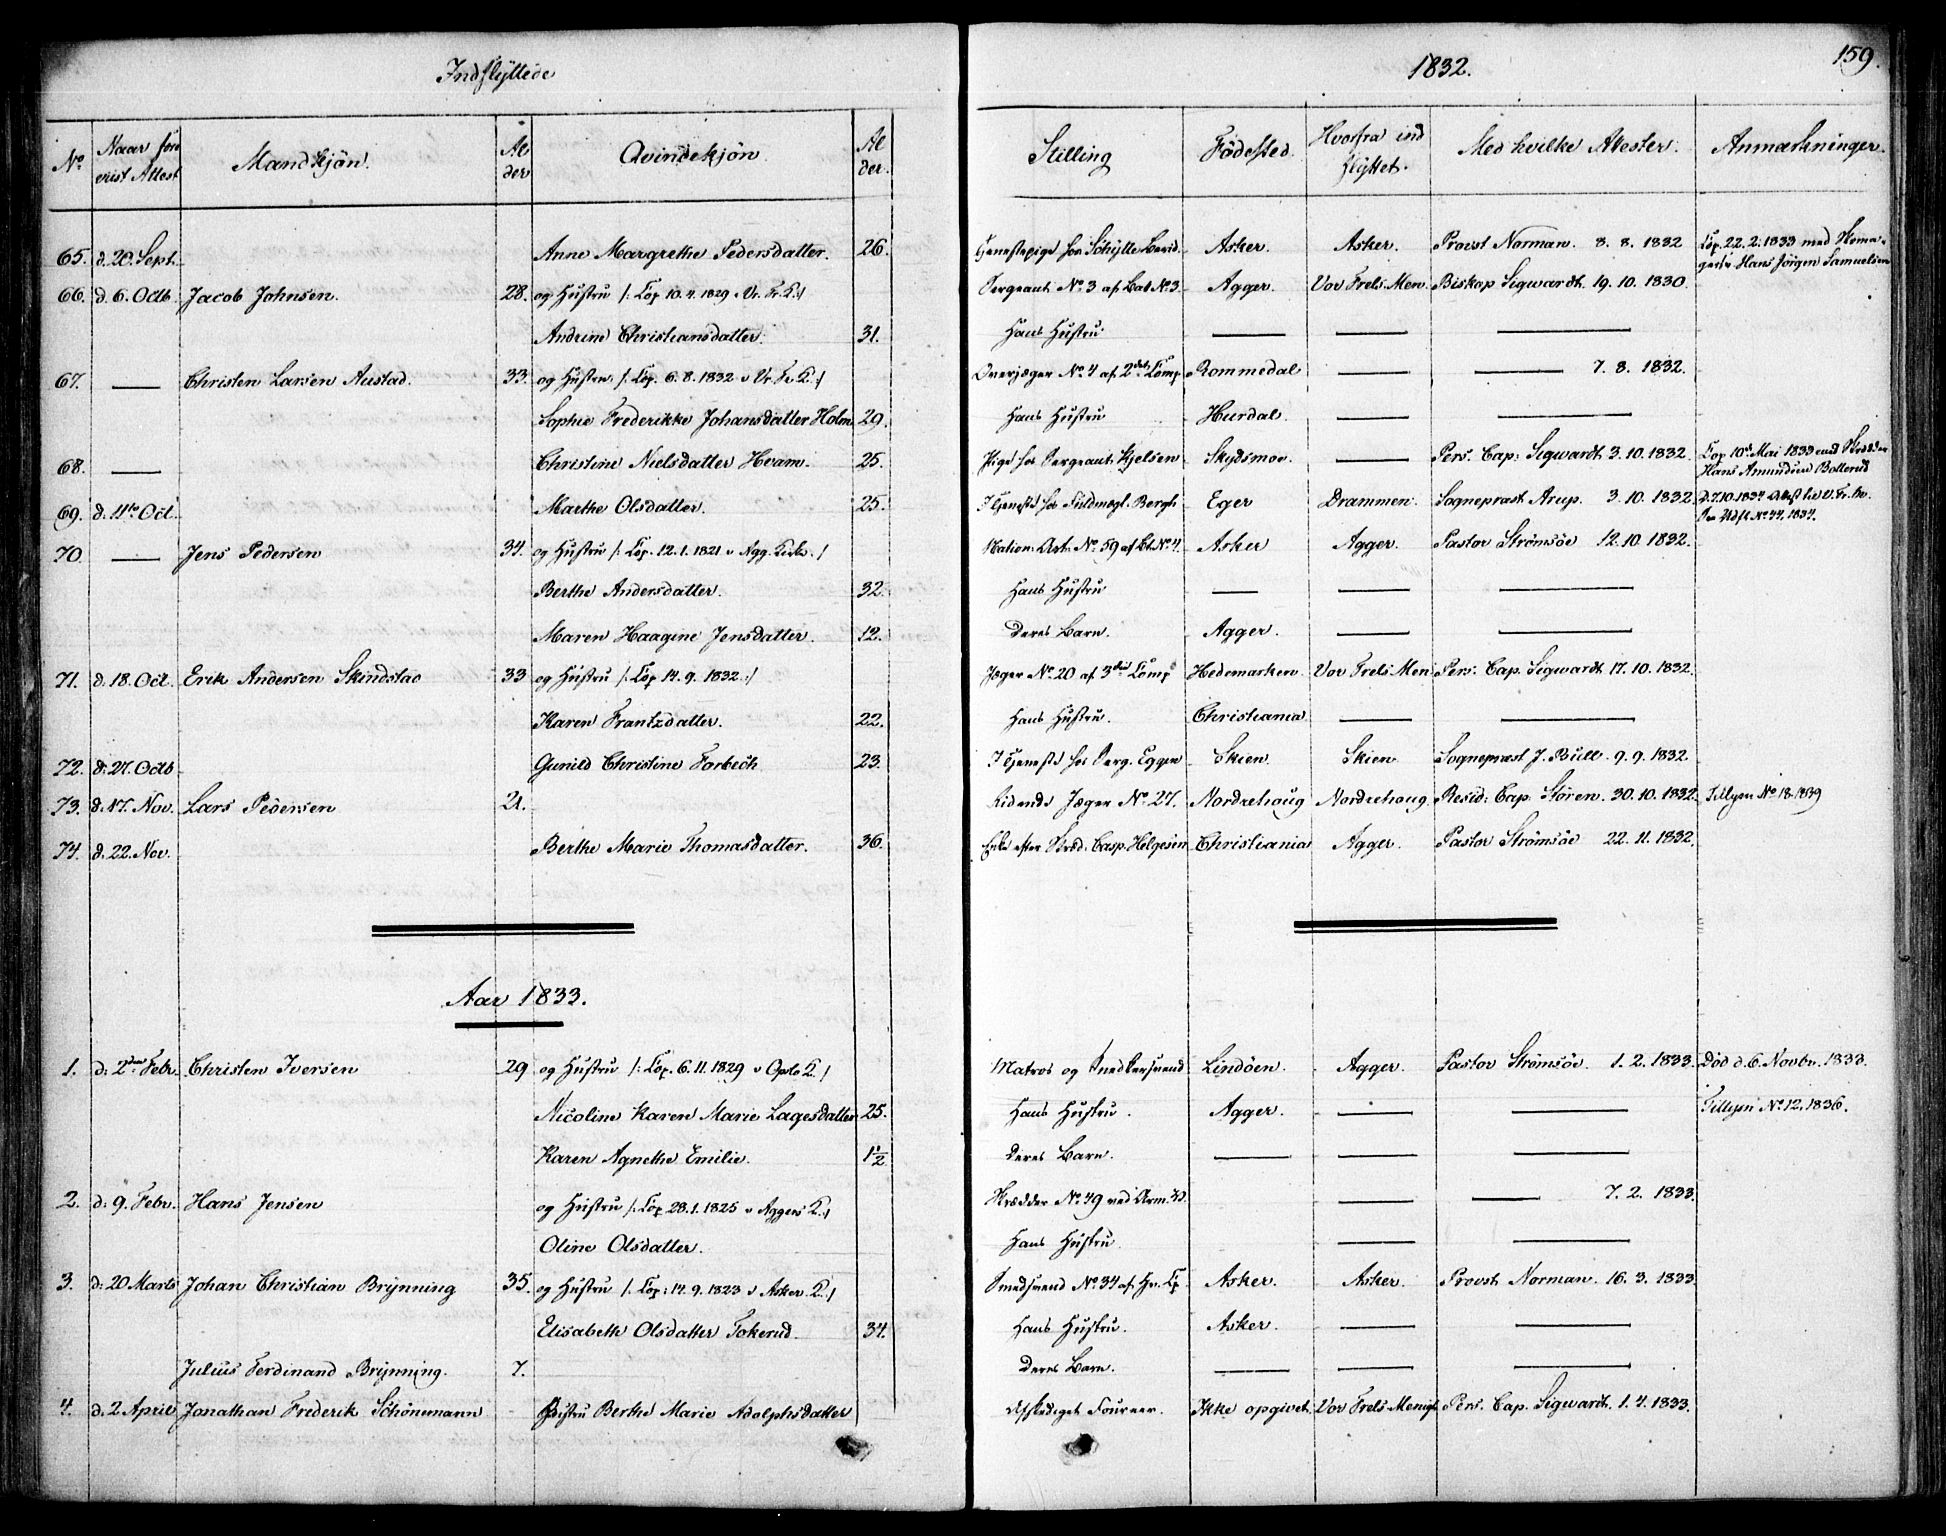 Indflyttede
1832.
159.
No Naar fore vist Attest Mandkjön. Al der Qvindekjön. Al der. Stilling Födested. Hvorfra ind flyttet. Med hvilke Attester. Anmærkninger.
65. d. 20. Sept. Anne Margrethe Pedersdatter. 26. Tjenestepige hos Asker. Asker. Provst Norman. 8. 8. 1832 Cop. 22. 2. 1833 med Skoma-
gersv. Hans Jörgen Samuelsen
66. d. 6. Octb. Jacob Johnsen. 28. og Hustru /: Cop. 10. 4. 1829 v. Vr. Fr. K :/ Sergeant No 3 af Bat No 3. Agger. Vor Frels. Men. Biskop Sigwardt. 19. 10. 1830.
Andrine Christiansdatter. 31. Hans Hustru. — — —
67. — Christen Larsen Austad. 33. og Hustru /: Cop. 6. 8. 1832 v. Vr. Fr. K :/ Overjæger No 4 af 2det Comp. Rommedal — — 7. 8. 1832.
Sophie Frederikke Johansdatter Holm 29. Hans Hustru Hurdal. — —
68. — Christine Nielsdatter Hvam. 25. Pige hos Sergeant Kjelsen Skydsmoe. — Pers. Cap: Sigwardt. 3. 10. 1832. Cop 10de Mai 1833 med
Hans Amundsen Bollerud
69. d. 11te Oct. Marthe Olsdatter. 25. I Tjeneste hos Fuldmægt. Bergh Eger Drammen. Sognepræst Arup. 3. 10. 1832. D. 7. 10. 1834 Attest
No 44, 1834.
70. — Jens Pedersen 34. og Hustru /: Cop. 12. 1. 1821 v Agg. Kirke :/ Nation: Art: No 59 af Bt. No 4. Asker Agger. Pastor Strömsöe 12. 10. 1832.
Berthe Andersdatter. 32. Hans Hustru — —
Maren Haagine Jensdatter. 12. Deres Barn. Agger. — —
71. d. 18. Oct. Erik Andersen Skindstao 33 og Hustru /: Cop 14. 9. 1832 :/ Jæger No 20 af 3die Comp Hedemarken Vor Frels Men. Pers. Cap. Sigwardt 17. 10. 1832.
Karen Frantzdatter. 22. Hans Hustru. Christiania — —
72. d. 27. Octb Gunild Christine Forbech 23. I Tjeneste hos Serg. Eggen Skien Skien. Sognepræst J. Bull. 9. 9. 1832.
73. d. 17. Nov. Lars Pedersen 21. Ridende Jæger No 27. Nordrehoug Nordrehoug. Resid. Cap. Stören. 30. 10. 1832. Tillysn No 18. 1839
74. d. 22. Nov. Berthe Marie Thomasdatter. 36. Enke efter Casp. Helgesen Christiania Agger. Pastor Strömsöe 22. 11. 1832.
Aar 1833.
1. d. 2den Febr. Christen Iversen 29 og Hustru /: Cop. 6. 11. 1829 v Oplo K. :/ Matros og Snedkersvend Lindöen. Agger. Pastor Strömsöe. 1. 2. 1833. Död d. 6. Novbr. 1833.
Nicoline Karen Marie Lagesdatter 25. Hans Hustru. Agger. — — Tillysn No 12, 1836.
Karen Agnethe Emilie. 1½ Deres Barn. — — —
2. d. 9. Febr. Hans Jensen og Hustru /: Cop. 28. 1. 1825 v Aggers K. :/ Skrædder No 49 ved — — 7. 2. 1833.
Oline Olsdatter. Hans Hustru. — —
3. d. 20 Marts Johan Christian Brynning 35. og Hustru /: Cop: 14. 9. 1823 v Asker K. :/ Smedsvend No 34 af Asker. Asker. Provst Norman. 16. 3. 1833.
Elisabeth Olsdatter Tokerud. 34. Hans Hustru. Asker. — —
Julius Ferdinand Brynning. 7. Deres Barn. — — —
4. d. 2 April Jonathan Frederik Schönemann Hustru Berthe Marie Adolphsdatter Afskediget Foureer. Ikke opgivet. Vor Frels Menigh. Pers. Cap. Sigwardt. 1. 4. 1833.